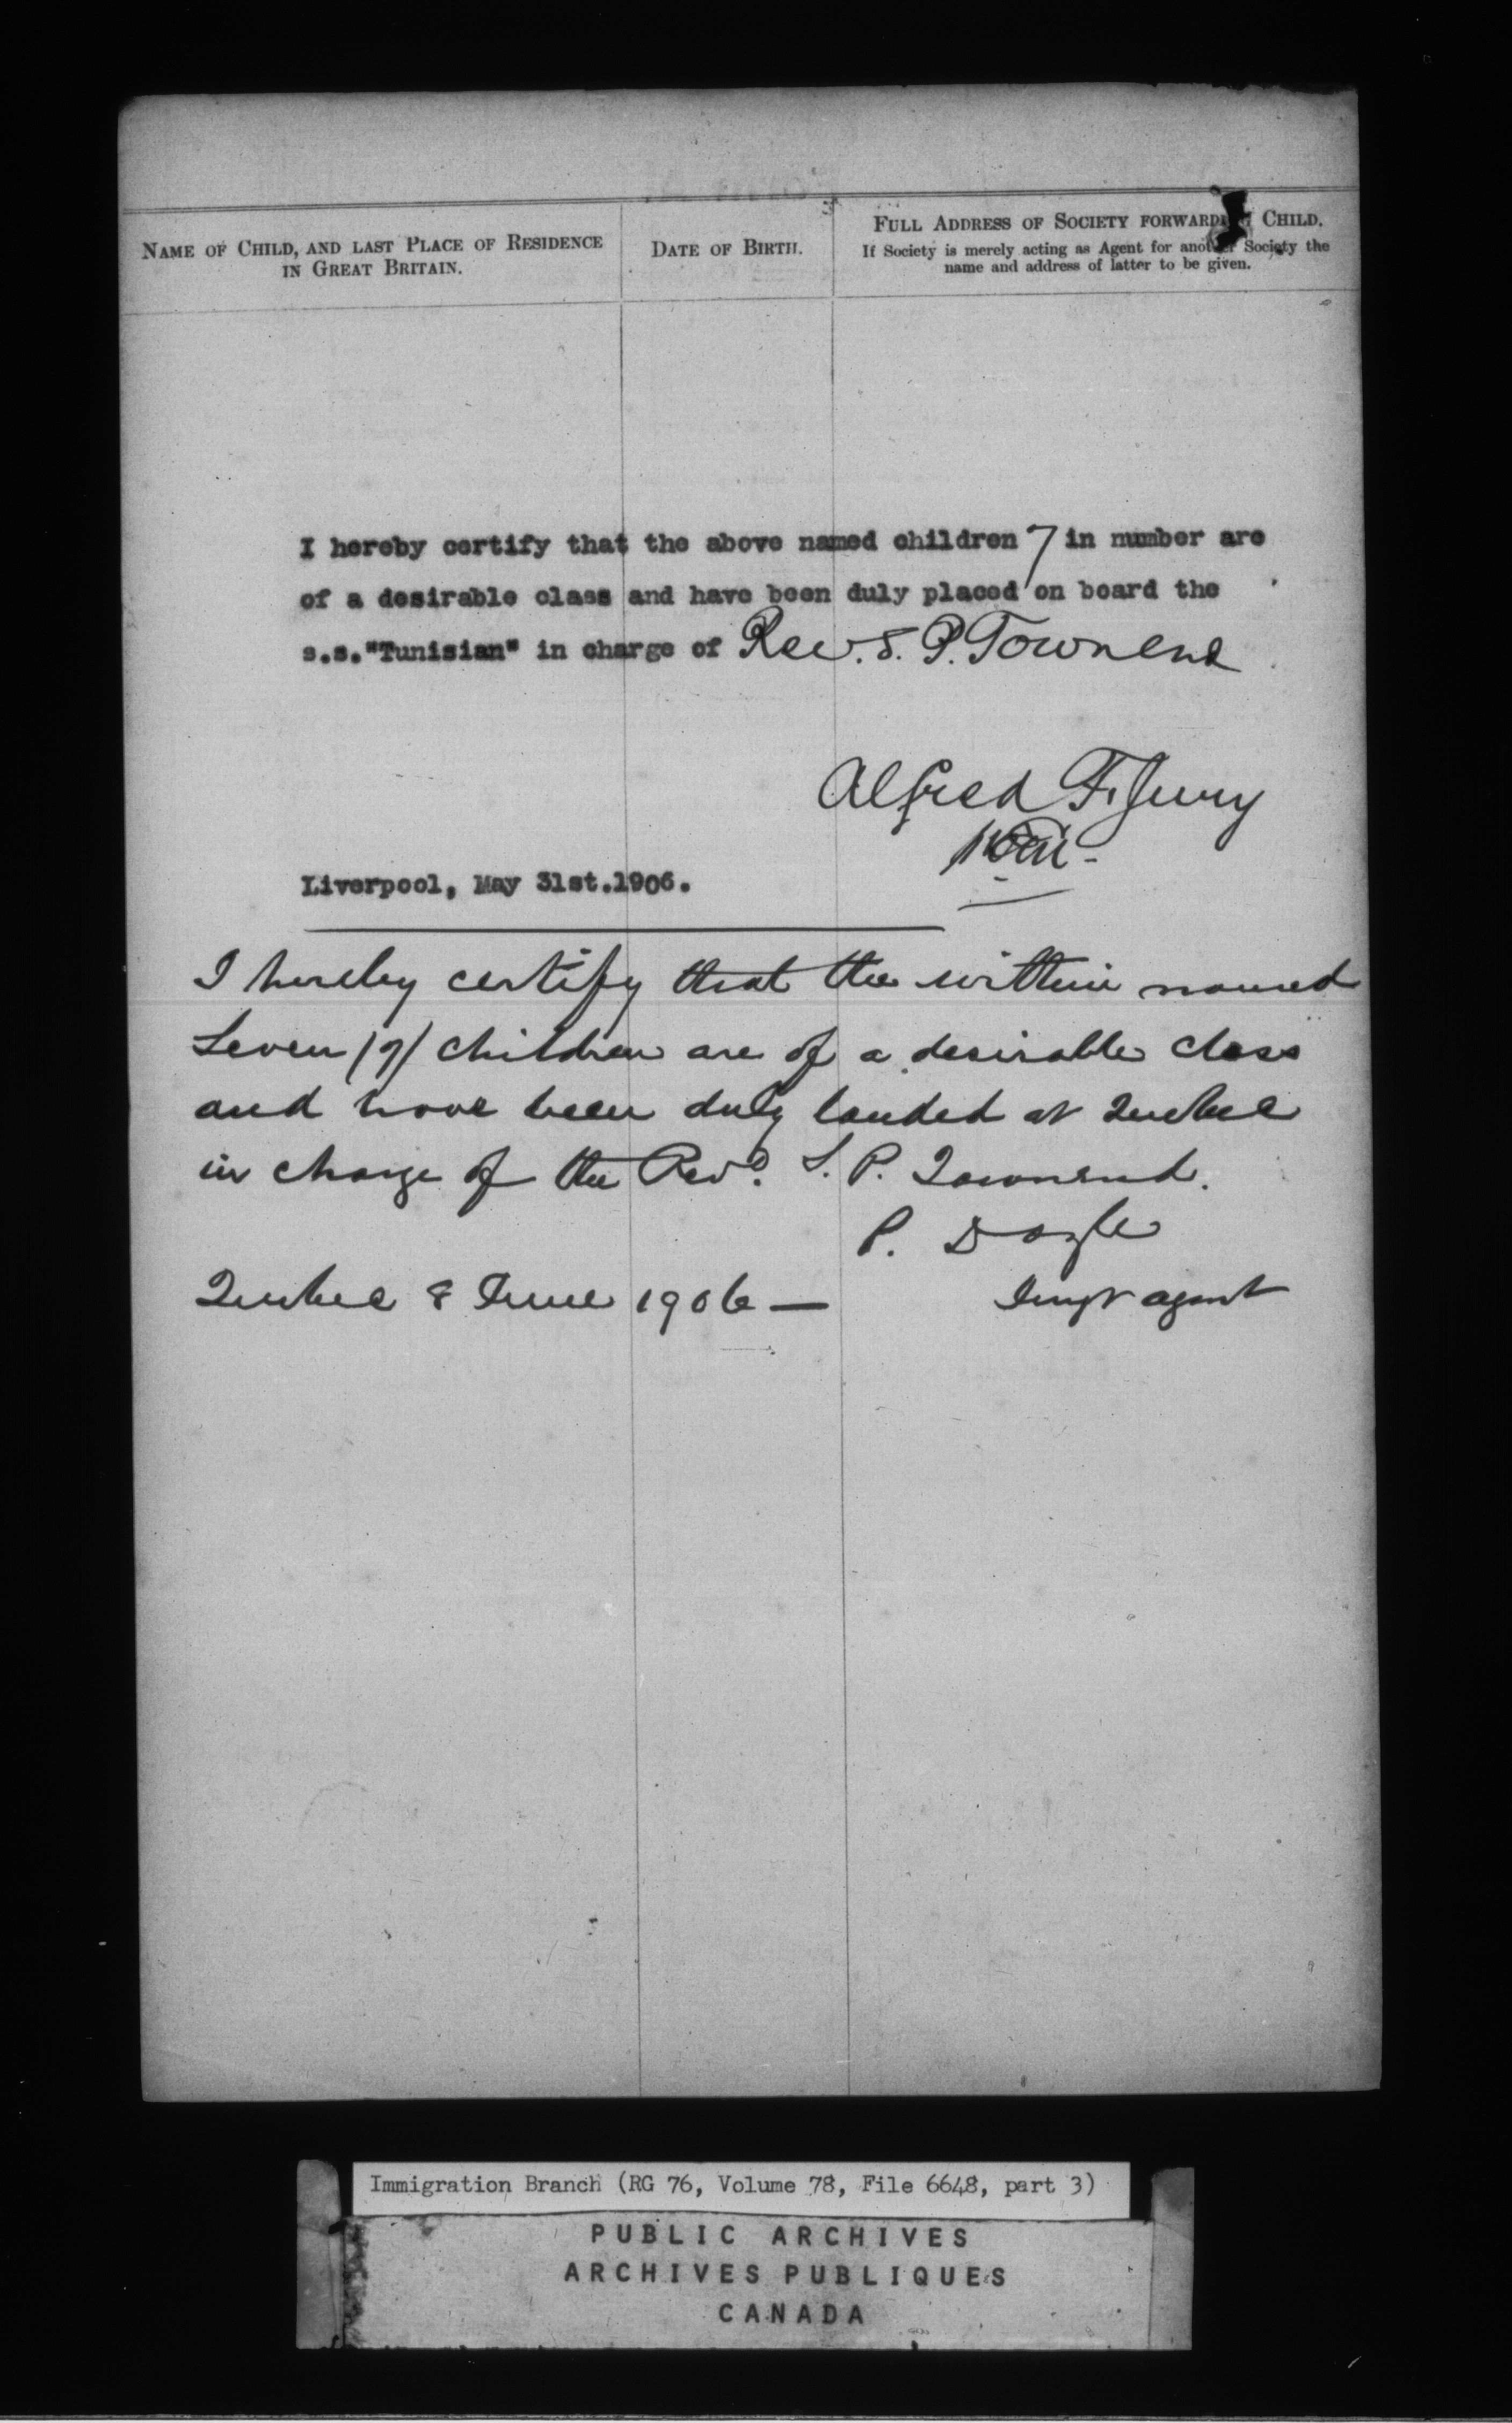 NAME OF CHILD, AND LAST PLACE OF RESIDENCE
IN GREAT BRITAIN.
DATE OF BIRTH.
FULL ADDRESS OF SOCIETY FORWARDING CHILD.
If Society is merely acting as Agent for another Society the
name and address of latter to be given.
I hereby certify that the above named children 7 in number are
of a desirable class and have been duly placed on board the
s.s."Tunisian" in charge of Rev. S. P. Townend
Alfred F. Jury
Liverpool, May 31st.1906.
I hereby certify that the within named
Seven (7) children are of a desirable class
and have been duly landed at Quebec
in charge of the Revd. S. P. Townend.
P. Doyle
Quebec 8 June 1906 —
Imgt agent
Immigration Branch (RG 76, Volume 78, File 6648, part 3)
PUBLIC ARCHIVES
ARCHIVES PUBLIQUES
CANADA